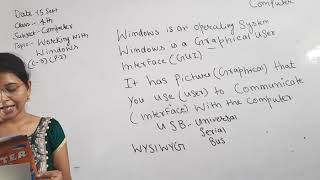 Computer
Date :- 15 Sept
Class :- 4th
Subject - Computer
Topic:- Working with
Windows
(L-3) (P-2)
Windows is an operating System
Windows is a Graphical User
Interface (GUI)
It has Pictures (Graphical) that
you use (user) to Communicate
(Interface) with the computer
USB - Universal
Serial
Bus
WYSIWYG
TER